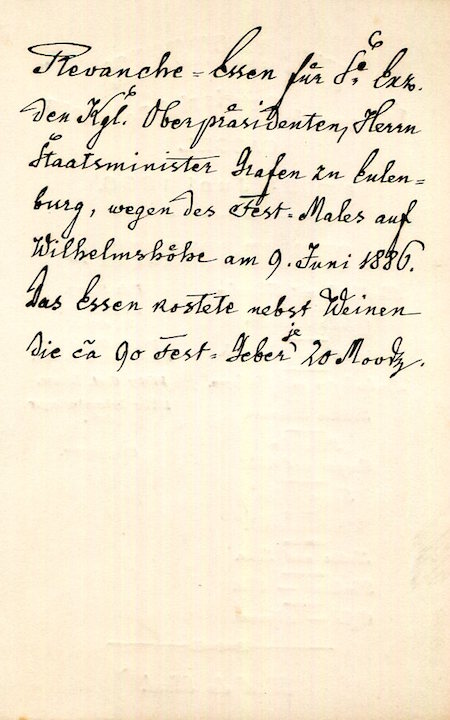 Revanche-Essen für Se Exz.
den Kgl. Oberpräsidenten, Herrn
Staatsminister Grafen zu Eulen=
burg, wegen des Fest=Males auf
Wilhelmshöhe am 9. Juni 1886.
Das Essen kostete nebst Weinen
die ca 90 Fest=Geber je 20